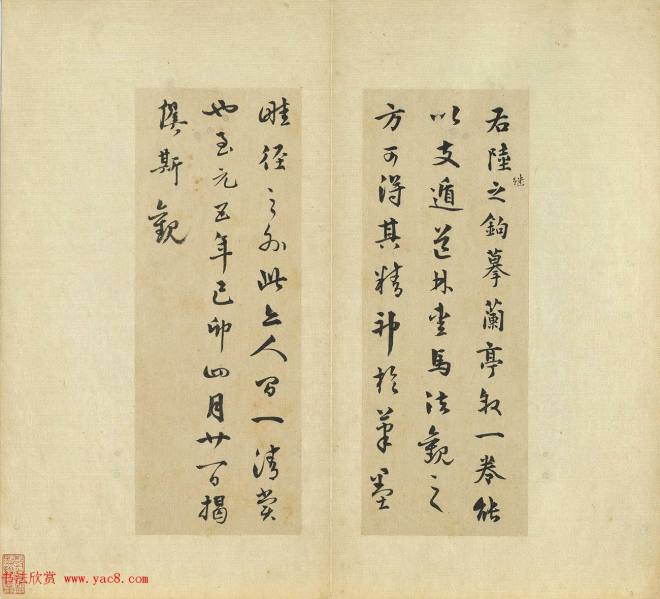 右陸之鈎摹蘭亭叙一卷能
继
以支遁道林愛馬法觀之
方可得其精神於筆墨
畦徑之外此亦人間一清賞
也至元五年己卯四月廿一日揭
傒斯觀
书法欣赏 www.yac8.com